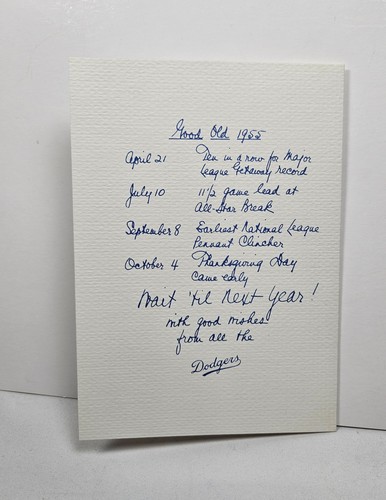 Good Old 1955
April 21 Ten in a row for Major
League Getaway record
July 10 11 1/2 game lead at
All-Star Break
September 8 Earliest National League
Pennant Clincher
October 4 Thanksgiving Day
came early
Wait 'til Next Year!
with good wishes
from all the
Dodgers